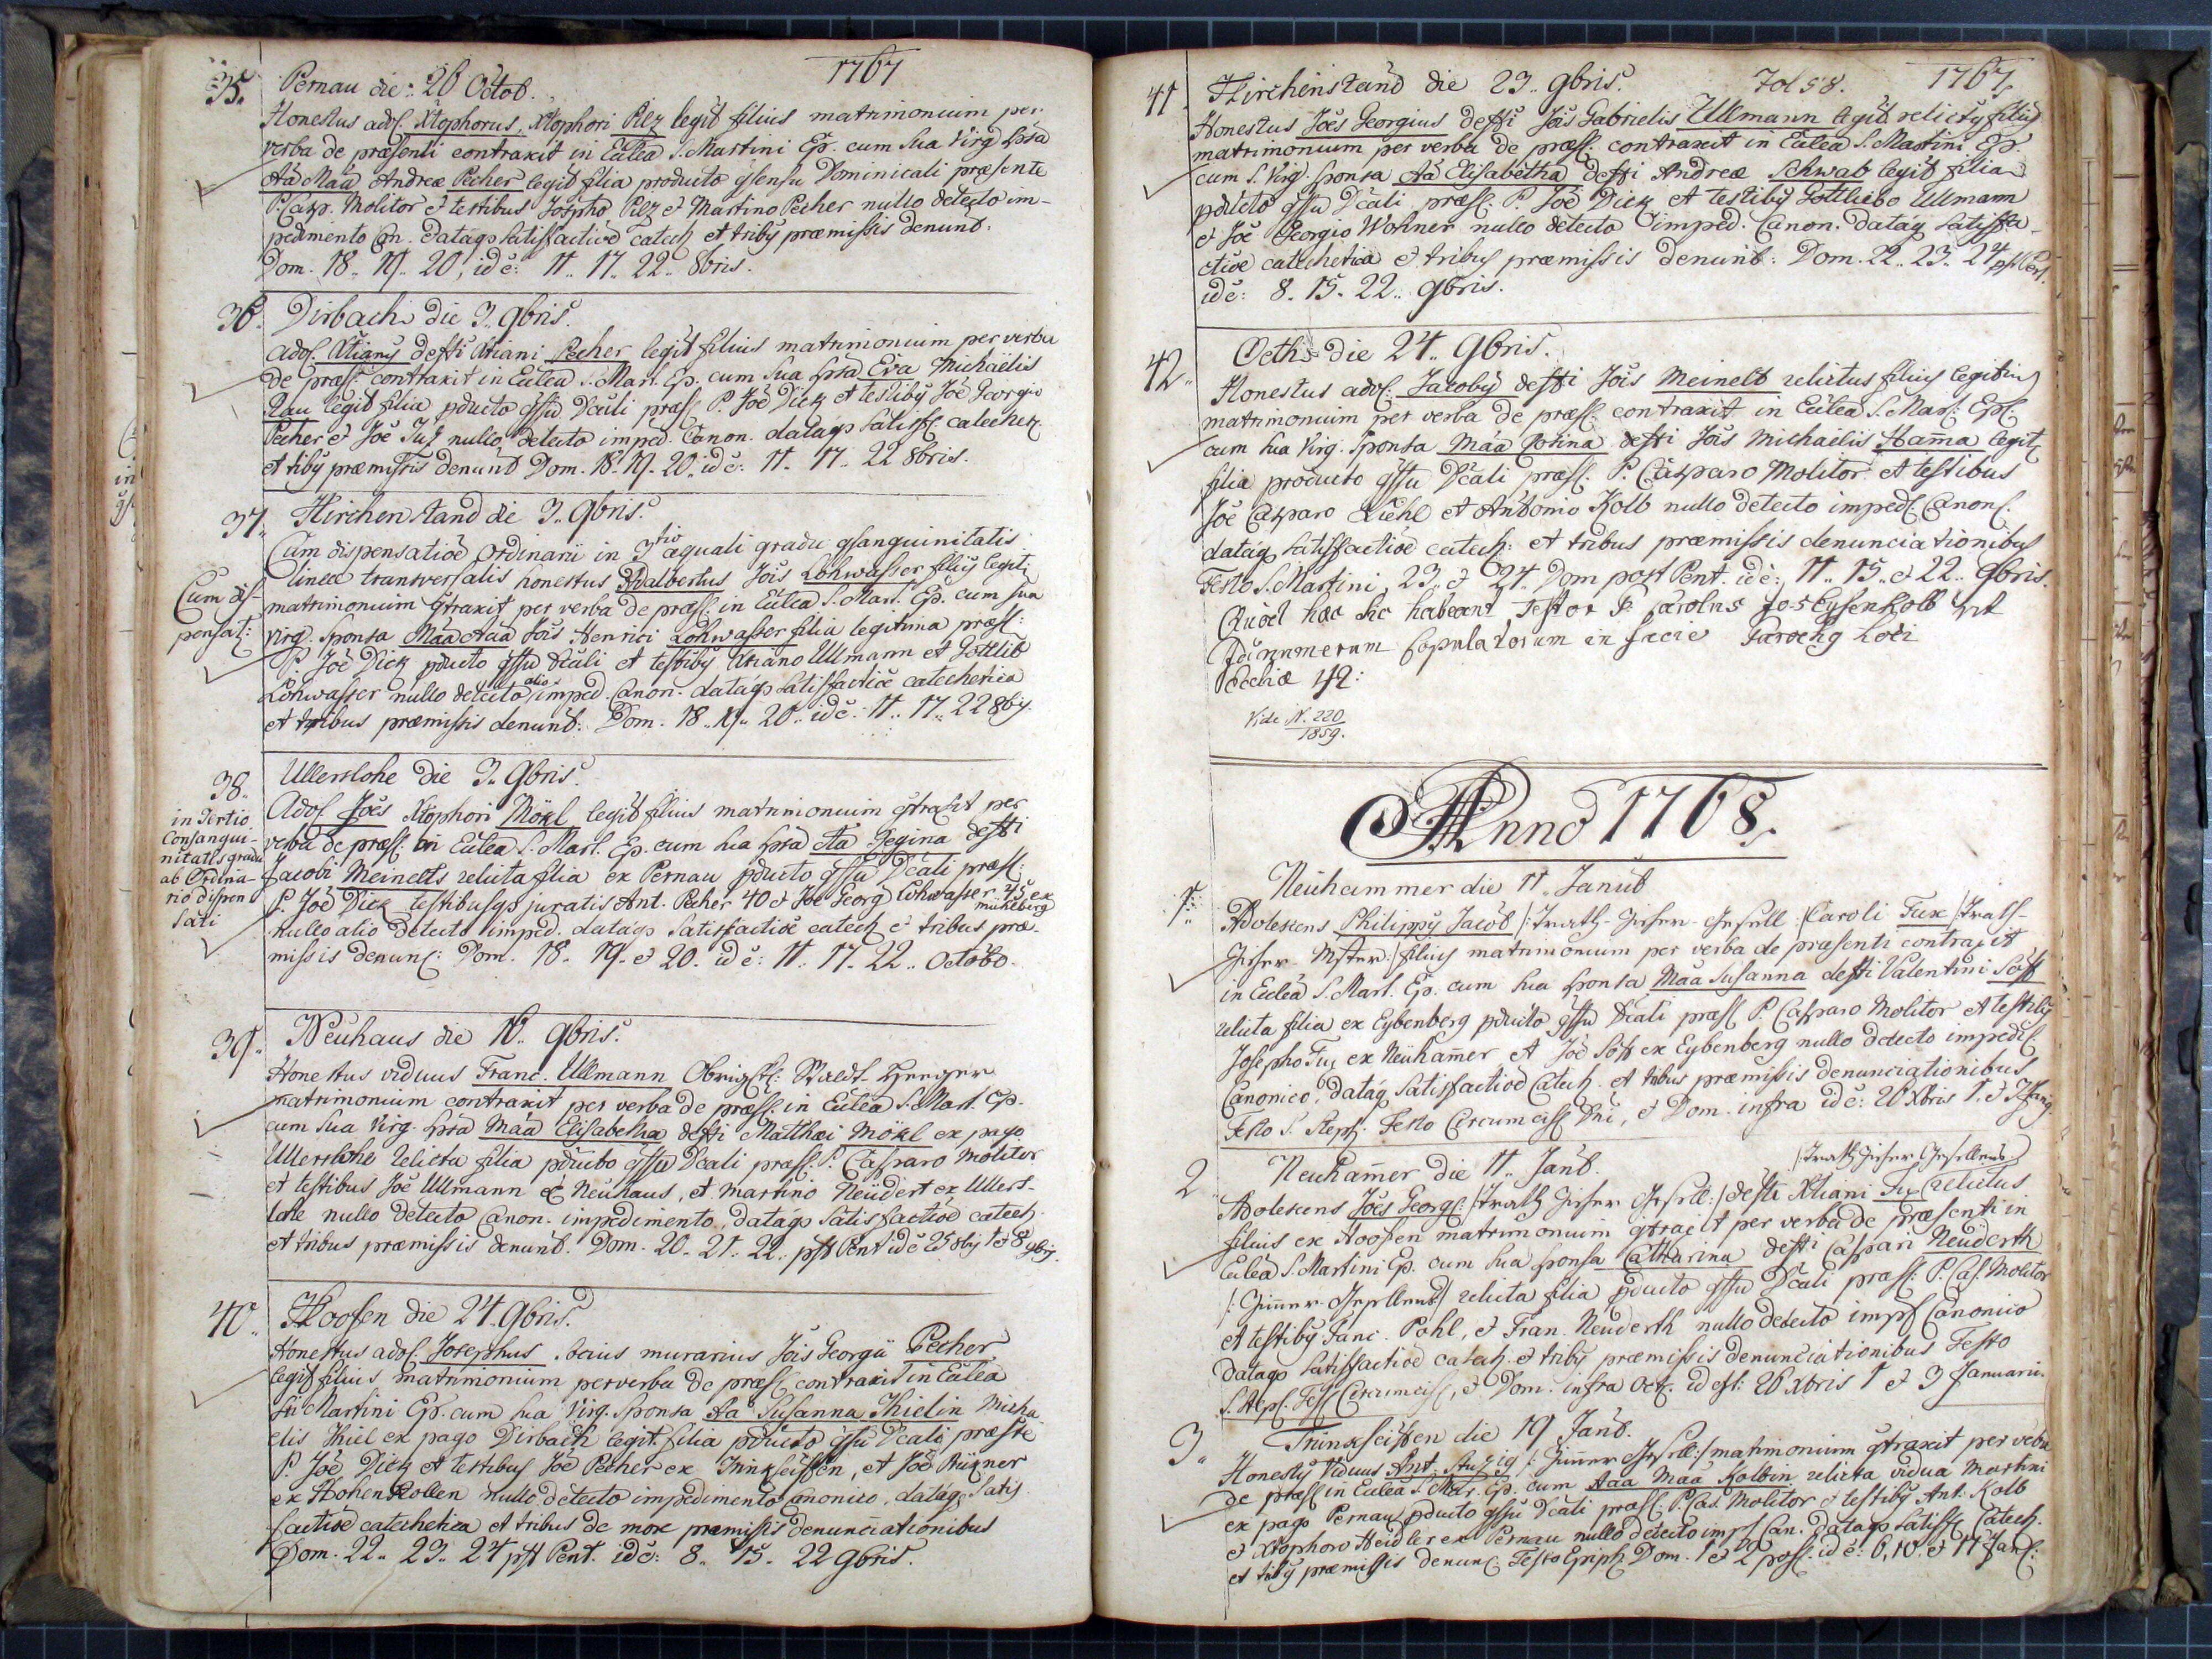 1767
35. Pernau die: 26 Octob.
Honestus adol. Xtophorus, Xtophori Pilz legit filius matrimonium per
verba de præsenti contraxit in Eulea S. Martini Ep. cum sua Virg spsa
Aa Maa Andreæ Pecher legit filia producto gsensu Dominicali præsente
P. Casp. Molitor et testibus Josepho Pilz et Martino Pecher nullo detecto im-
pedimento Can. datáqs satisfactioē catech et tribq præmissis denunt.
Dom. 18. 19. 20, id ē: 11.. 17.. 22.. 8bris.
36. Dirbach die 3.. 9bris.
adol. Xtianq deffti Xtiani Pecher legit filius matrimonium per verba
de præss: contraxit in Eulea S. Mart. Ep. cum sua spsa Eva Michaëlis
Rau legit filia pducto gssu Dcali præss P. Joē Dick et testibq Joē Georgio
Pecher et Joē nullo detecto imped. Canon. datáqs satisff catechet.
et tibq præmissis denunt Dom. 18. 19. 20. id ē: 11. 17. 22 8bris.
37.. Hirchenstand die 3.. 9bris.
Cum dispensatioē Ordinarii in 3tio æquali gradu gsanguinitatis
linea transversalis honestus Adalbertus Jois Lohwasser filiq legit:
Cum dis-
pensat:
matrimonium gtraxit per verba de præss: in Eulea S. Mart. Ep. cum sua
virg. sponsa Maa Aaa Jois Henrici Lohwasser filia legitima præss:
P. Joē Dick pducto gssu Dcali et testibq Xtiano Ullmann et Gottlib
Lohwasser nullo detecto alio imped. Canon. datáqs satisfactioē catechetica
et tribus præmissis denunt: Dom. 18.. 19.. 20.. id ē: 11.. 17.. 22 8bq
38.. Ullerslohe die 3.. 9bris.
in Tertio
Consangui-
nitatis gradu
ab Ordina-
rio dispen
sati
Adol. Joēs Xtophori Mökl legit filius matrimonium gtraxit per
verba de præss: in Eulea S. Mart. Ep. cum sua spsa Aa Regina deffti
Jacobi Meinelts relicta filia ex Pernau pducto gssu Dcali præss:
P. Joē Dick testibusqs juratis Ant. Pecher 40 et Joē Georg Lohwasser 45 ex
mückeberg
nullo alio detecto imped. datáqs satisfactioē catech et tribus præ-
missis denunt: Dom. 18. 19. et 20. id ē: 11. 17. 22.. Octobo.
39.. Neuhaus die 10.. 9bris.
Honestus viduus Franc. Ullmann Obrigktl: Waldt-Heeger
matrimonium contraxit per verba de præss: in Eulea S. Mart. Ep.
cum sua Virg. spsa Maa Elisabetha deffti Matthæi Mökl ex pago
Ullersloho relicta filia pducto gssu Dcali præss: P. Casparo Molitor
et testibus Joē Ullmann ex Neuhaus, et Martino Neudert ex Ullers-
lohe nullo detecto Canon. impedimento, datáqs satisfactioē catech
et tribus præmissis denunt. Dom. 20. 21. 22. pst Pent id ē 25 8bq 1 et 8 9bq.
40.. Hoofen die 24. 9bris.
Honestus adol. Josephus socius murarius Jois Georgii Pecher
legit filius matrimonium per verba de præss contraxit in Eulea
S. Martini Ep. cum sua Virg. Sponsa Aa Susanna Thielin Micha
elis Thiel ex pago Dirbach legit. filia pducto gssu Dcali præste
P. Joē Dick et testibus Joē Pecher ex Trinkseiffen, et Joē Prükner
ex Hohenstollen nullo detecto impedimento Canonico, datáqs satis
factioē catechetica et tribus de more præmissis denunciationibus
Dom. 22.. 23.. 24 pst Pent. id ē: 8.. 15.. 22 9bris.
Fol 58. 1767.
41 Hirchenstand die 23.. 9bris.
Honestus Joēs Georgius deffti Jois Gabrielis Ullmann legit relictq filiq
matrimonium per verba de præss: contraxit in Eulea S. Martini Ep.
cum S. Virg. sponsa Aa Elisabetha deffti Andreæ Schwab legit filia
pducto gssu Dcali præss: P. Joē Dick et testibq Gottliebo Ullmann
et Joē Georgio Wohner nullo detecto imped. Canon. datáq satisffa-
ctioē catechetica et tribus præmissis denunt: Dom. 22.. 23.. 24 pst Pent.
id ē: 8. 15. 22.. 9bris.
42.. Oeth die 24.. 9bris.
Honestus adol. Jacobq deffti Jois Meinelt relictus filiq legitimq
matrimonium per verba de præss: contraxit in Eulea S. Mart: Epi:
cum sua Virg. Sponsa Maa Rosina deffti Jois Michaëlis Hamma legit
filia producto gssu Dcali præss: P. Casparo Molitor et testibus
Joē Casparo Liehl et Antonio Kolb nullo detecto imped. Canon.
datáq satisffactioē catech: et tribus præmissis denunciationibus
Festo S. Martini, 23.. et 24. Dom post Pent. id ē: 11.. 15.. et 22.. 9bris.
Quod hæc sic habeant Testor P. Carolus Jos Eysenkolb
numerum Copulatorum in facie Parochq Loci
Ecclæ 42:
Vide N. 220
1859.
Anno 1768.
1. Neuhammer die 11. Janub
Adolescens Philippq Jacob /: Drath-Zieher-Gesell :/ Caroli Fux /: Drath-
Zieher-Mster :/ filiq matrimonium per verba de præsenti contraxit
in Eulea S. Mart. Ep. cum sua sponsa Maa Susanna deffti Valentini Söff
relicta filia ex Eybenberg pducto gssu Dcali præss P. Casparo Molitor et testibq
Josepho Fux ex Neuhammer et Joē Söff ex Eybenberg nullo detecto imped:
Canonico, datáq satisffactioē Catech. et tribus præmissis denunciationibus
Festo S. Steph. Festo Circumciss Dni, et Dom. infra id ē: 26 Xbris 1. et 3 Janq
2 Neuhammer die 11.. Janb.
/: Drath Zieher Gesellens
Adolescens Joēs Georg: /: Drath Zieher Gesell :/ deffti Xtiani Fux relictus
filius ex Hoofen matrimonium gtraxit per verba de præsenti in
Eulea S. Martini Ep. cum sua sponsa Catharina deffti Caspari Neuderth
/: Zimmer-Gesellens :/ relicta filia pducto gssu Dcali præss: P. Cas. Molitor
et testibq Franc. Pohl, et Fran. Neuderth nullo detecto imp Canonico
datáqs satisffactioē catech. et tribq præmissis denunciationibus Festo
S. Steph. Fest Circumciss, et Dom. infra Oct. id est: 26 Xbris 1 et 3 Januarii.
3.. Trinkseiffen die 19 Janb.
Honestq Viduus Ant. Anzig /: Zimmer Gesell :/ matrimonium gtraxit per verba
de præss in Eulea S. Mart. Ep. cum Aaa Maa Kolbin relicta vidua Martini
ex pago Pernau pducto gssu Dcali præss: P. Cas. Molitor et testibq Ant. Kolb
et Xtophoro Heidler ex Pernau nullo detecto imp Can. datáqs satisff Catech.
et tribq præmissis denunc Festo Epiph Dom. 1 et 2 post id ē: 6, 10. et 17 Jan: